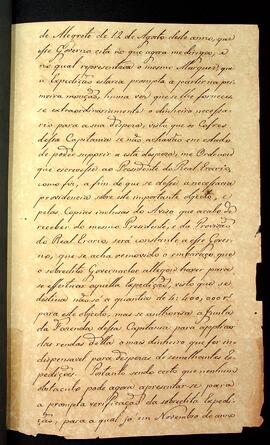 de Alegrete de 12 de Agosto deste anno, que
esse Governo cita no que agora me dirigio, e
no qual representava o mesmo Marquez, que
a Expedição estava prompta a partir na pri-
meira monção, huma vez que se lhe fornecesse
extraordinariamente o dinheiro necessa-
rio para a sua despeza, visto que os Cofres
dessa Capitania se não achavão em estado
de poder supprir a esta despeza, me Ordenou
que escrevesse ao Presidente do Real Erario,
como fiz, a fim de que se desse a necessaria
providencia sobre este importante objecto, e
pelas Copias inclusas do Aviso que acabo de
receber do mesmo Presidente, e da Provisão
do Real Erario será constante a esse Gover-
no, que se acha removido o embaraço, que
o sobredito Governador allegou haver para
se effeituar aquella Expedição, visto que se
destina não só a quantia de
para este objecto, mas se authorisa a Junta
da Fazenda dessa Capitania para applicar
das rendas della o mais dinheiro que for in-
dispensavel para despezas de semelhantes Ex-
pedições. Portanto sendo certo que nenhum
obstaculo pode agora apresentar-se para
a prompta verificação da sobredita Expedi-
ção, para a qual já em Novembro do anno